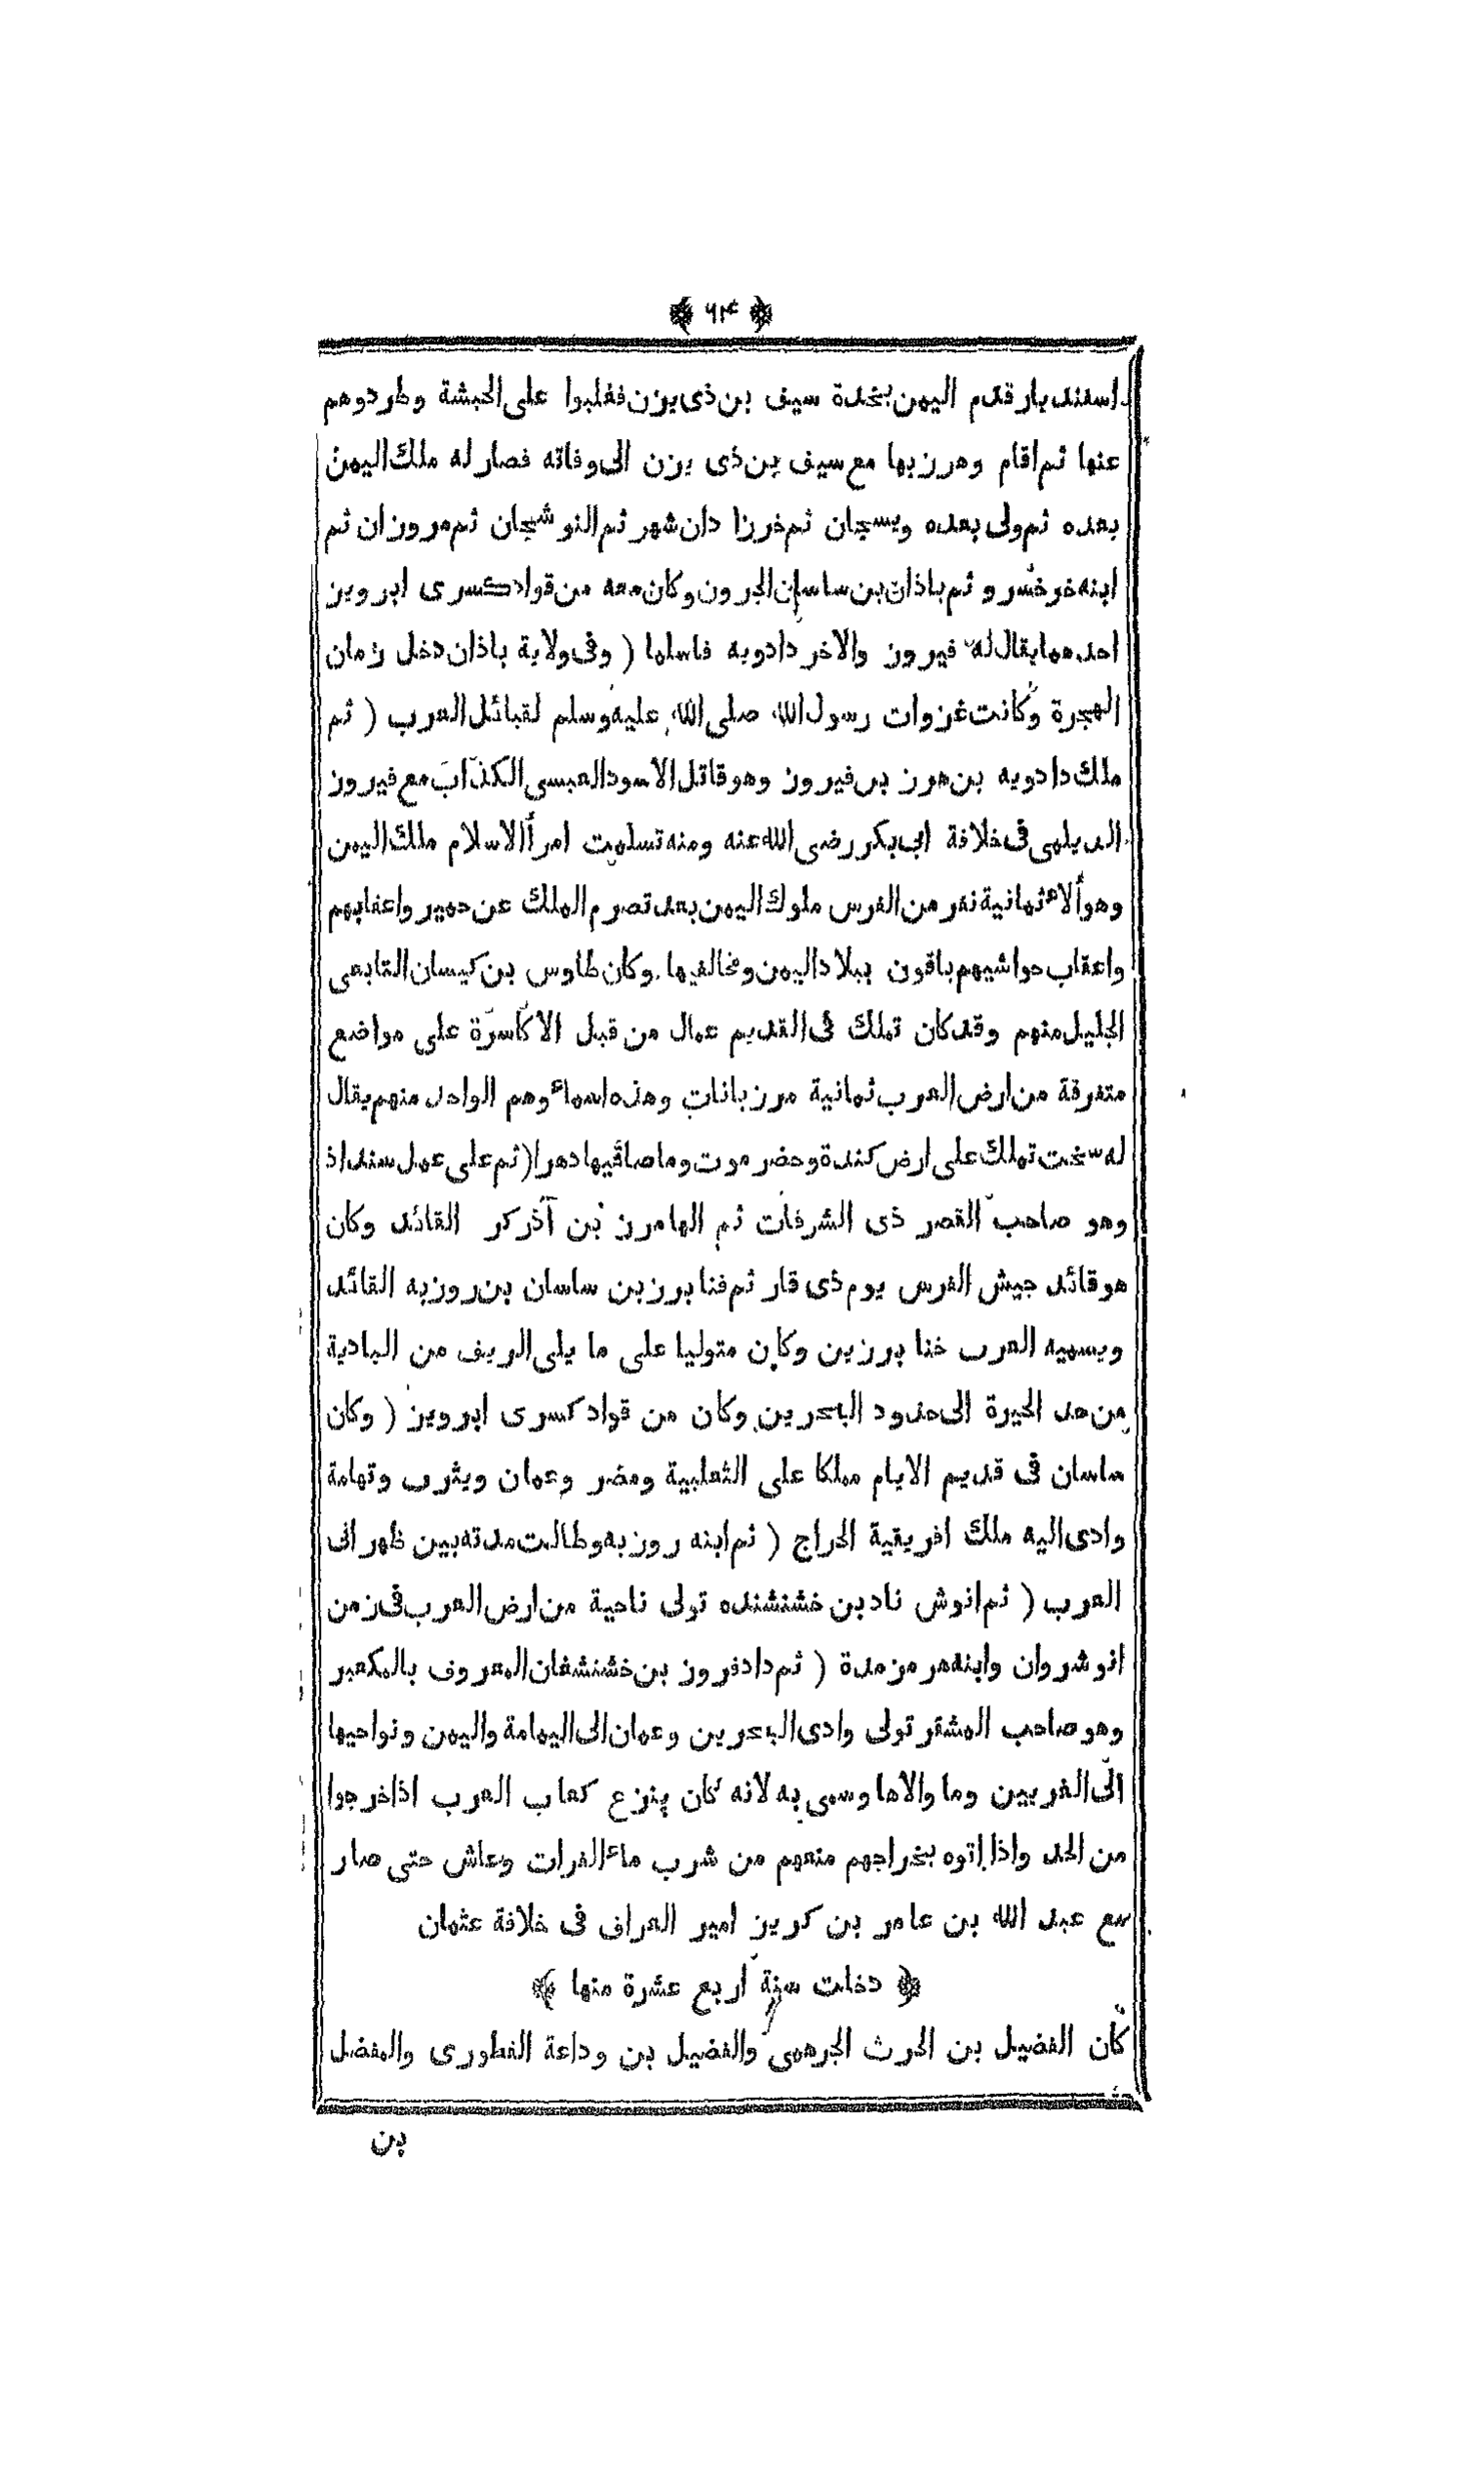 ﴿ ٦٢٤ ﴾
اسفنديار قدم اليمن بنجدة سيف بن ذى يزن فغلبوا على الحبشة وطردوهم
عنها ثم اقام وهرز بها مع سيف بن ذى يزن الى وفاته فصار له ملك اليمن
بعده ثم ولى بعده ويسجان ثم خرزا دان شهر ثم النو شجان ثم مروزان ثم
ابنه خرخسرو ثم باذان بن ساسان الجرون وكان معه من قواد كسرى ابرويز
احدهما يقال له فيروز والاخر دادويه فاسلما ( وفى ولاية باذان دخل زمان
الهجرة وكانت غزوات رسول الله صلى الله عليه وسلم لقبائل العرب ( ثم
ملك دادويه بن هرز بن فيروز وهو قاتل الاسود العبسى الكذاب مع فيروز
الديلمى فى خلافة ابى بكر رضى الله عنه ومنه تسلمت امرأ الاسلام ملك اليمن
وهوألاء ثمانية نفر من الفرس ملوك اليمن بعد تصرم الملك عن حمير واعقابهم
واعقاب حواشيهم باقون ببلاد اليمن ومخالفيها وكان طاوس بن كيسان التابعى
الجليل منهم وقد كان تملك فى القديم عمال من قبل الاكاسرة على مواضع
متفرقة من ارض العرب ثمانية مرزبانات وهذه اسماء وهم الواحد منهم يقال
له سخت تملك على ارض كندة وحضر موت وما صاقبها دهرا ( ثم على عمل سنداذ
وهو صاحب القصر ذى الشرفات ثم الهامرز بن آذركر القائد وكان
هو قائد جيش الفرس يوم ذى قار ثم فنا برز بن ساسان بن روزبه القائد
ويسميه العرب خنا برزين وكان متوليا على ما يلى الريف من البادية
من حد الحيرة الى حدود البحرين وكان من قواد كسرى ابرويز ( وكان
ساسان فى قديم الايام مملكا على الثعلبية ومضر وعمان ويثرب وتهامة
وادى اليه ملك افريقية الخراج ( ثم ابنه روزبه وطالت مدته بين ظهرانى
العرب ( ثم انوش ناد بن خشنشنده تولى ناحية من ارض العرب فى زمن
انوشروان وابنه هرمز مدة ( ثم دادفروز بن خشنشفان المعروف بالمكعبر
وهو صاحب المشقر تولى وادى البحرين وعمان الى اليمامة واليمن ونواحيها
الى الغريين وما والاها وسمى به لانه كان ينزع كعاب العرب اذا خرجوا
من الحد واذا اتوه بخراجهم منعهم من شرب ماء الفرات وعاش حتى صار
مع عبد الله بن عامر بن كريز امير العراق فى خلافة عثمان
﴿ دخلت سنة اربع عشرة منها ﴾
كان الفضيل بن الحرث الجرهمى والفضيل بن وداعة القطورى والمفضل
بن